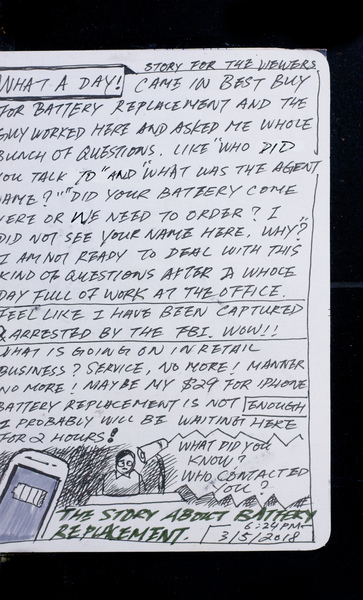 STORY FOR THE VIEWERS
WHAT A DAY! CAME IN BEST BUY
FOR BATTERY REPLACEMENT AND THE
GUY WORKED HERE AND ASKED ME WHOLE
BUNCH OF QUESTIONS. LIKE "WHO DID
YOU TALK TO" AND "WHAT WAS THE AGENT
NAME?" "DID YOUR BATTERY COME
HERE OR WE NEED TO ORDER? I
DID NOT SEE YOUR NAME HERE. WHY?"
I AM NOT READY TO DEAL WITH THIS
KIND OF QUESTIONS AFTER A WHOLE
DAY FULL OF WORK AT THE OFFICE.
FEEL LIKE I HAVE BEEN CAPTURED
& ARRESTED BY THE FBI. WOW!!
WHAT IS GOING ON IN RETAIL
BUSINESS? SERVICE, NO MORE! MANNER
NO MORE! MAYBE MY $29 FOR IPHONE
BATTERY REPLACEMENT IS NOT ENOUGH
I PROBABLY WILL BE WAITING HERE
FOR 2 HOURS!
WHAT DID YOU
KNOW?
WHO CONTACTED
YOU?
THE STORY ABOUT BATTERY
REPLACEMENT.
6:24 PM
3/5/2018